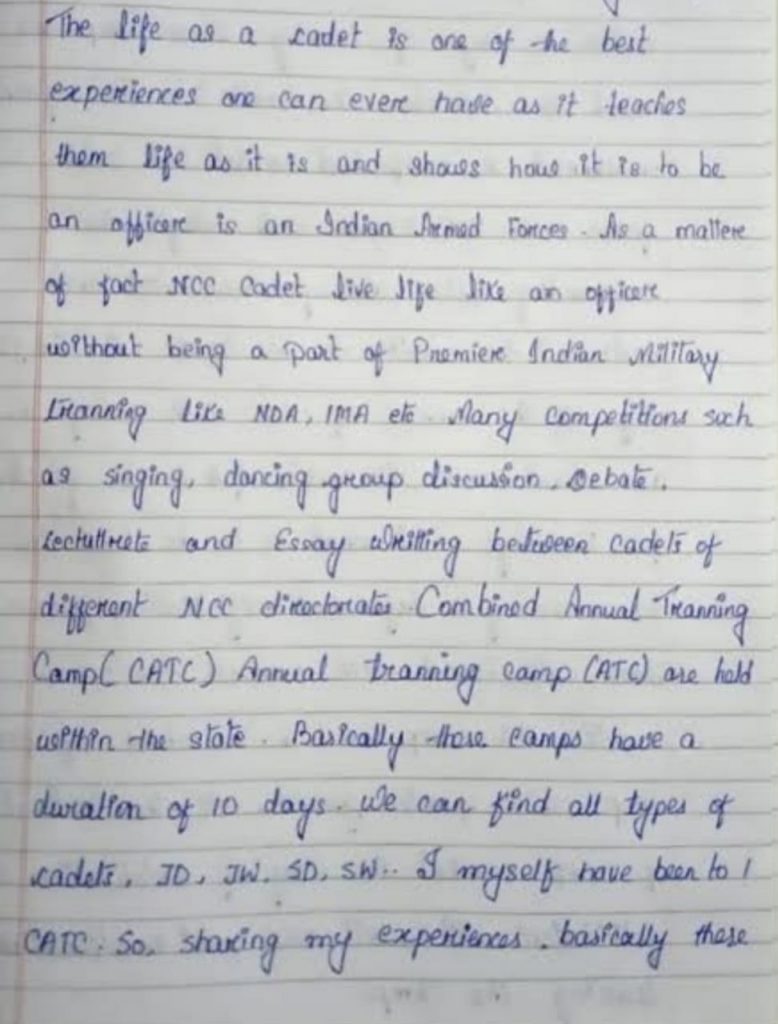 The life as a cadet is one of the best
experiences one can ever have as it teaches
them life as it is and shows how it is to be
an officer is an Indian Armed Forces. As a matter
of fact NCC Cadet live life like an officer
without being a part of Premiere Indian Military
Tranning like NDA, IMA etc. Many competitions such
as singing, dancing group discussion, debate,
and Essay writting between cadets of
different NCC directorates Combined Annual Tranning
Camp( CATC) Annual tranning camp (ATC) are held
within the state. Basically these camps have a
duration of 10 days. We can find all types of
cadets, JD, JW, SD, SW.. I myself have been to 1
CATC. So, sharing my experiences, basically these